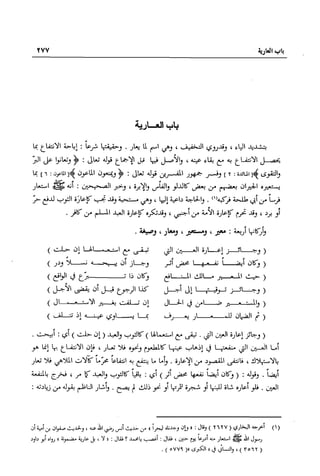 باب العارية
٢٧٧
باب العـــارية
بتشديد الياء ، وقد روي التخفيف ، وهي اسم لما يعار . وحقيقتها شرعاً : إباحة الانتفاع بما
يحصـل الانتفـاع به مع بقاء عينه ، والأصـل فيها قبل الإجماع قوله تعالى : ﴿ وتعاونوا على البرّ
والتقوى ﴾[المائدة : ٢] وفسر جمهور المفسرين قوله تعالى : ﴿ ويمنعون الماعون ﴾[الماعون : ٦] بما
يستعيره الجيران بعضهم من بعض كالدلو والفأس والإبرة ، وخبر الصحيحين : أنه ﷺ استعار
فرساً من أبي طلحة فركبه(١) . والحاجة داعية إليها ، وهي مستحبة وقد تجب كإعارة الثوب لدفع حرّ
أو برد ، وقد تحرم كإعارة الأمة من أجنبي ، وقد تكره كإعارة العبد المسلم من كافر .
وأركانها أربعة : معير ، ومستعير ، ومعار ، وصيغة .
( وجـــائـــز إعـــارة العــين التي تبقـى مع استعمـالهـا إن حلت )
( وكان أيضـــاً نفعهـــا محض أثر وجـاز أن يبيحـــه نســـلاً ودر )
( حيث المعـــير مـــالك المنـــافع وكان ذا تـــبرّع في الواقع )
( وجـــائـــز توقيتهـــا إلى أجـــل كذا الرجوع قبل أن يقضى الأجل )
( والمستعـــير ضـــامن في الحـــال إن تلفت بغـــير الاستعـــمال )
( ثم الضمان للمعـــار يعـــرف بمـــا يســـاوي عينـــه إذ تتلف )
( وجائز إعارة العين التي . تبقى مع استعمالها ) كالثوب والعبد ( إن حلت ) أي : أبيحت .
أما العين التي منفعتها في إذهاب عينها كالمطعوم ونحوه فلا تعار ، فإن الانتفاع بها إنما هو
بالاستهلاك ، فانتفى المقصود من الإعارة . وأما ما ينتفع به انتفاعاً محرّماً كآلات الملاهي فلا تعار
أيضاً . وقوله : ( وكان أيضاً نفعها محض أثر ) أي : بقاياً كالثوب والعبد كما مر ، فخرج بالمنفعة
العين . فلو أعاره شاة للبنها أو شجرة لثمرتها أو نحو ذلك لم يصح . وأشار الناظم بقوله من زيادته :
(١) أخرجه البخاري ( ٢٦٢٧ ) وقال : « وإن وجدناه لبحراً » من حديث أنس رضي الله عنه ، وحديث صفوان بن أمية أن
رسول الله ﷺ استعار منه أدرعاً يوم حنين ، فقال : أغصب يا محمد ؟ فقال : « لا ، بل عارية مضمونة » رواه أبو داود
( ٣٥٦٢ ) ، والنسائي في « الكبرى » ( ٥٧٧٩ ) .